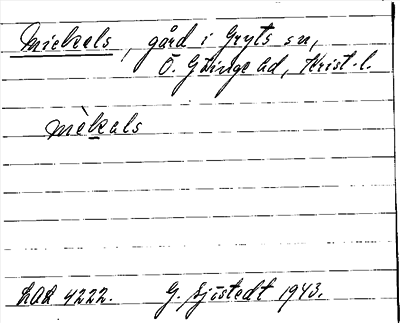 Mickels, gård i Gryts sn,
Ö. Göinge hd, Krist. l.
mèkals
LAL 4222. G. Sjöstedt 1943.